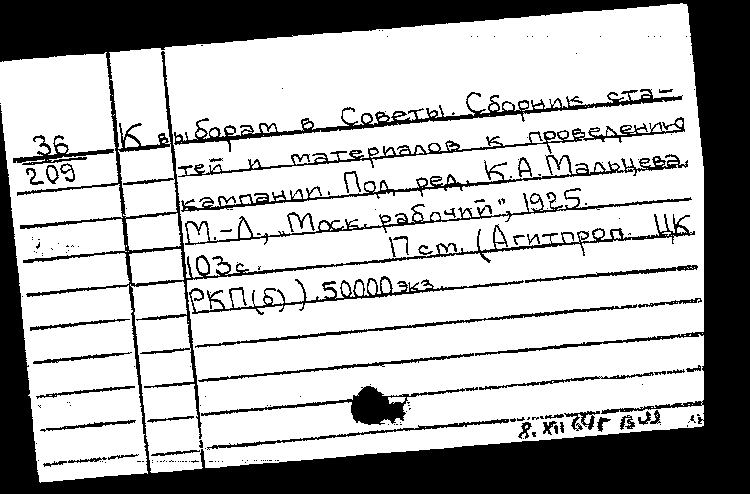 36
209
К выборам в Советы. Сборник ста-
тей и материалов к проведению
кампании. Под ред. К.А. Мальцева.
М.-Л., "Моск. рабочий", 1925.
103 с. П ст. (Агитпроп. ЦК
РКП(б)). 50000 экз.
8. XII 64г